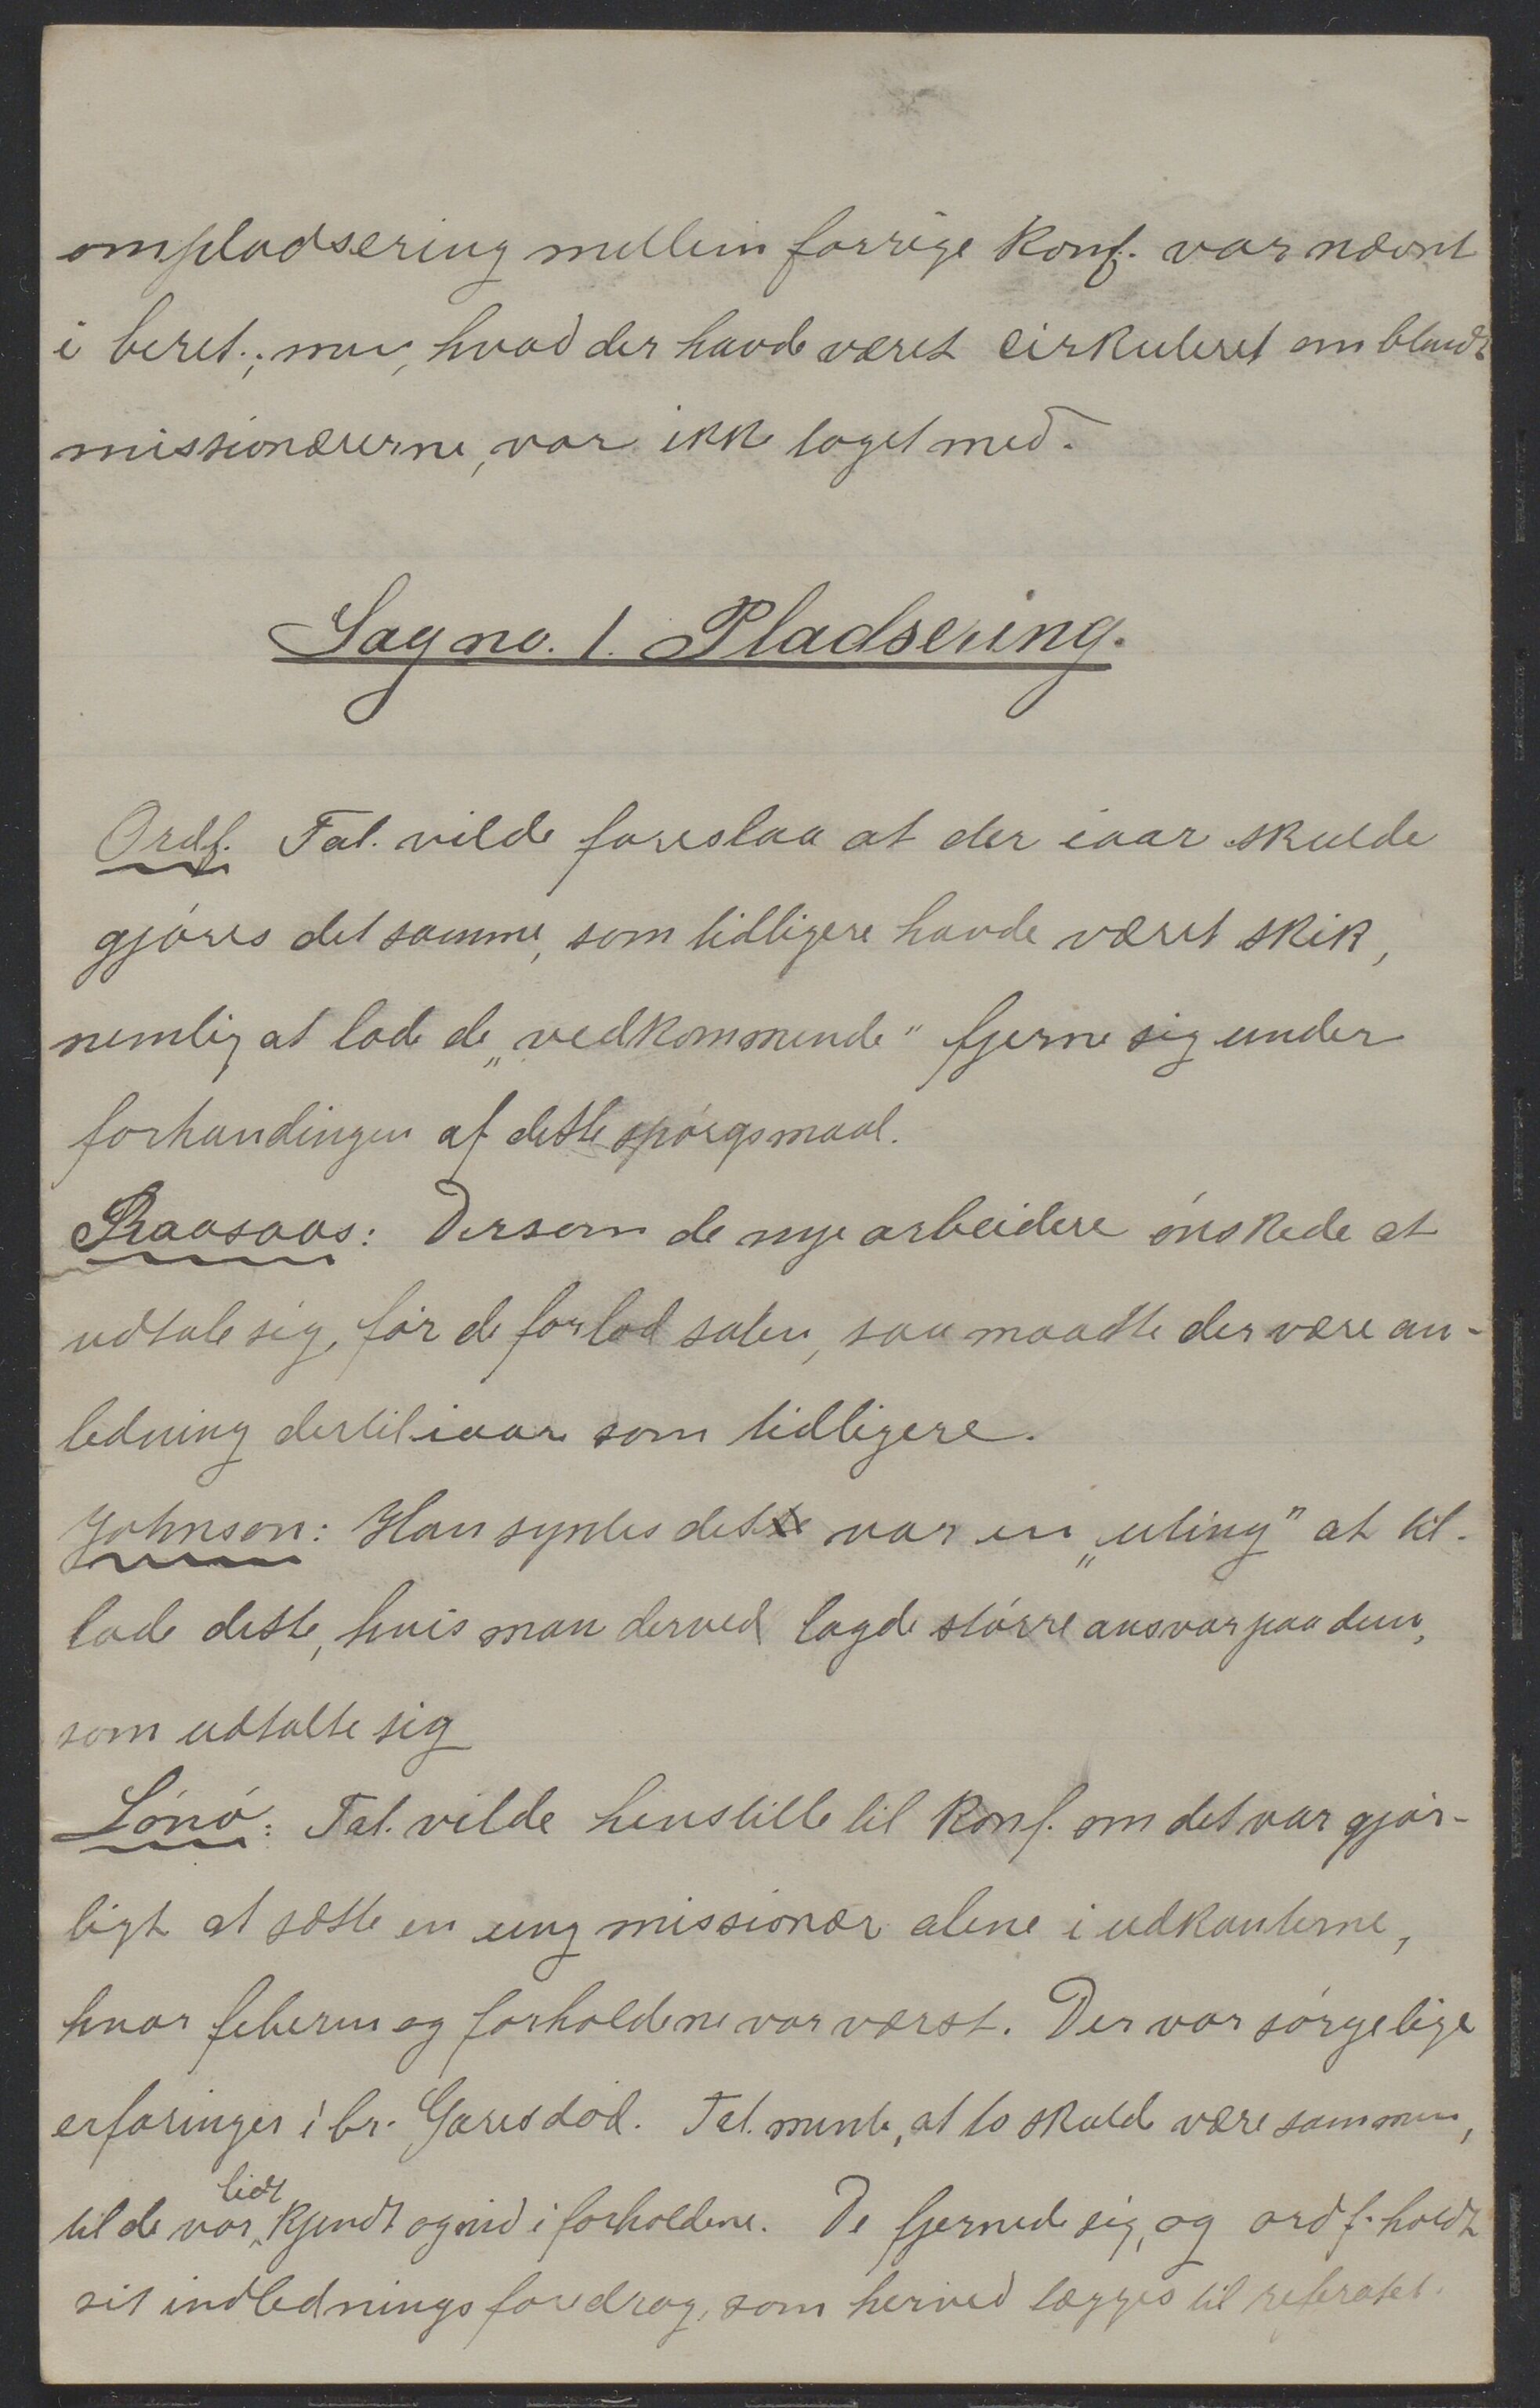 ompladsering mellem forrige Konf. var nævnt
i beret.; men, hvad der havde været cirkuleret om blandt
missionærerne, var ikke taget med.
Sag no. 1. Pladsering.
Ordf. Tal. vilde foreslaa at der iaar skulde
gjøres det samme, som tidligere havde været skik,
nemlig at lade de „vedkommende" fjerne sig under
forhandingen af dette spørgsmaal.
Raaaaas: Dersom de nye arbeidere ønskede at
udtale sig, før de forlod salen, saa maatte der være an-
ledning dertil iaar som tidligere.
Johnson: Han syntes det var en „uting" at til-
lade dette, hvis man derved lagde større ansvar paa dem,
som udtalte sig
Lønø: Tal. vilde henstille til Konf. om det var gjør-
ligt at sætte en ung missionær alene i udkanterne,
hvor feberen og forholdene var værst. Der var sørgelige
erfaringer i br. Gares død. Tal. mente, at to skulde være sammen,
til de var lidt kjendt og med i forholdene. De fjernede sig, og ordf. holdt
sit indlednings foredrag, som herved lægges til referatet.